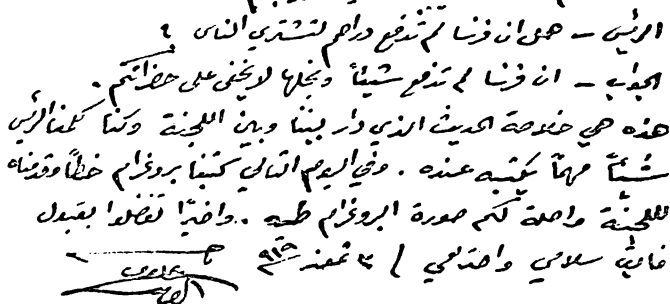 الرئيس – هل ان فرنسا لم تدفع دراهم لتشتري الناس ؟
الجواب – ان فرنسا لم تدفع شيئاً وبخلها لا يخفى على حضراتكم .
هذه هي خلاصة الحديث الذي دار بيننا وبين اللجنة وكنا كلمنا الرئيس
شيئاً مهماً يكتبه عنده . وفي اليوم التالي كتبنا بروغرام خطاً وقدمناه
للجنة واصلة لكم صورة البروغرام طيه . واخيرًا تفضلوا بقبول
فائق سلامي واحترامي / ٣ تموز ٩١٩